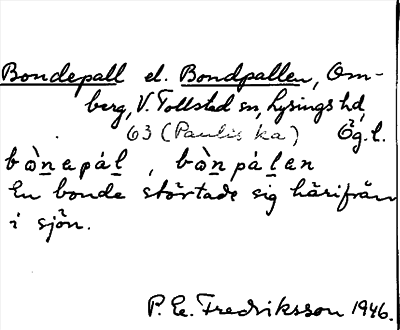 Bondepall el. Bondpallen, Om-
berg, V. Tollstad sn, Lysings hd,
63 (Paulis ka) Ög. l.
bò̀napál, bò̀npálan
En bonde störtade sig härifrån
i sjön.
P. E. Fredriksson 1946.